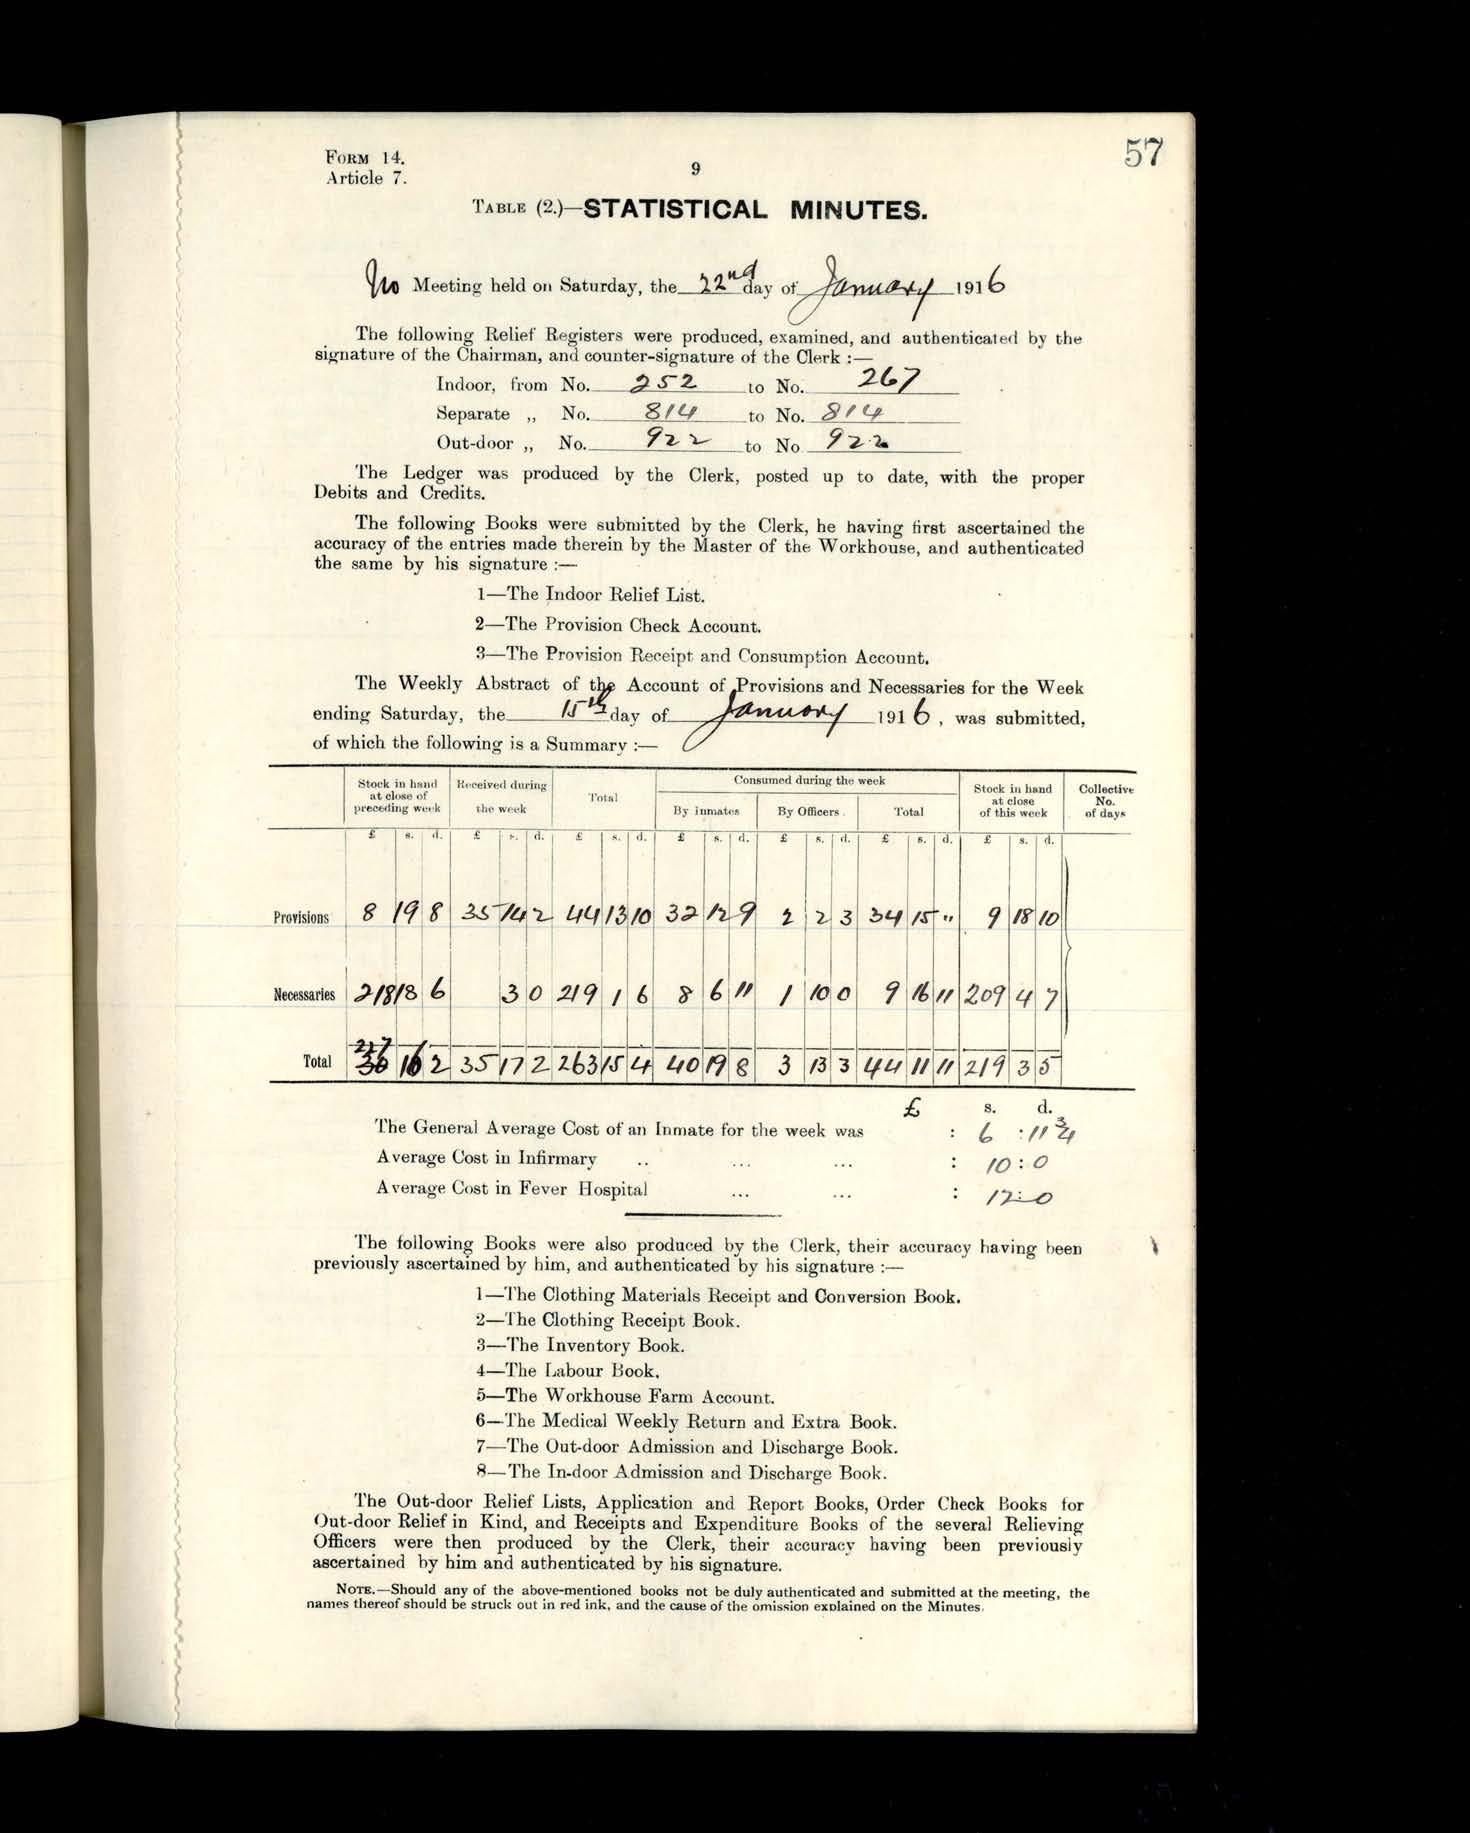 57
FORM 14.
Article 7.
9
TABLE (2.)—STATISTICAL MINUTES.
No Meeting held on Saturday, the 22nd day of January 1916
The following Relief Registers were produced, examined, and authenticated by the
signature of the Chairman, and counter-signature of the Clerk :—
Indoor, from No. 252 to No. 267
Separate „ No. 814 to No. 814
Out-door „ No. 922 to No 922
The Ledger was produced by the Clerk, posted up to date, with the proper
Debits and Credits.
The following Books were submitted by the Clerk, he having first ascertained the
accuracy of the entries made therein by the Master of the Workhouse, and authenticated
the same by his signature :—
1—The Indoor Relief List.
2—The Provision Check Account.
3—The Provision Receipt and Consumption Account.
The Weekly Abstract of the Account of Provisions and Necessaries for the Week
ending Saturday, the 15th day of January 1916, was submitted,
of which the following is a Summary :—
Stock in hand at close of preceding week Received during the week Total Consumed during the week Stock in hand at close of this week Collective No. of days
By inmates By Officers. Total
£ s. d. £ s. d. £ s. d. £ s. d. £ s. d. £ s. d. £ s. d.
Provisions 8 19 8 35 14 2 44 13 10 32 12 9 2 2 3 34 15 " 9 18 10
Necessaries 218 18 6 3 0 219 1 6 8 6 11 1 10 0 9 16 11 209 4 7
Total 227 16 2 35 17 2 263 15 4 40 19 8 3 13 3 44 11 11 219 3 5
£ s. d.
The General Average Cost of an Inmate for the week was : 6 : 11 3/4
Average Cost in Infirmary .. ... ... : 10 : 0
Average Cost in Fever Hospital ... ... : 12 : 0
The following Books were also produced by the Clerk, their accuracy having been
previously ascertained by him, and authenticated by his signature :—
1—The Clothing Materials Receipt and Conversion Book.
2—The Clothing Receipt Book.
3—The Inventory Book.
4—The Labour Book.
5—The Workhouse Farm Account.
6—The Medical Weekly Return and Extra Book.
7—The Out-door Admission and Discharge Book.
8—The In-door Admission and Discharge Book.
The Out-door Relief Lists, Application and Report Books, Order Check Books for
Out-door Relief in Kind, and Receipts and Expenditure Books of the several Relieving
Officers were then produced by the Clerk, their accuracy having been previously
ascertained by him and authenticated by his signature.
NOTE.—Should any of the above-mentioned books not be duly authenticated and submitted at the meeting, the
names thereof should be struck out in red ink, and the cause of the omission explained on the Minutes.